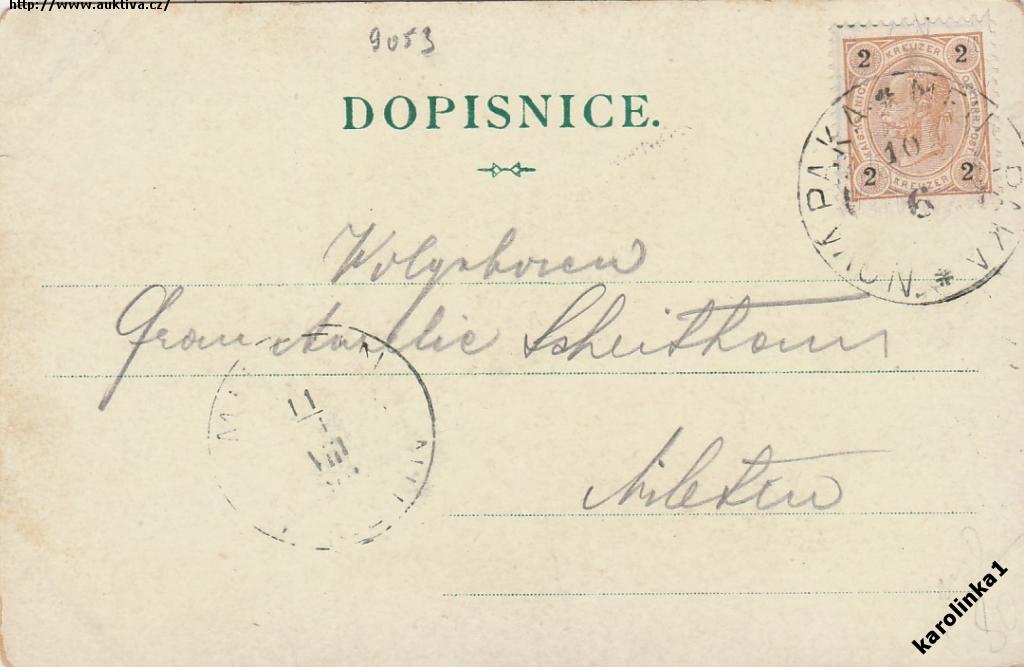 http://www.auktiva.cz/
9053
DOPISNICE.
2 KREUZER 2
2 KREUZER 2
NOVÁ PAKA
10
6
Wolgeboren
Frau Aurelie Scheithauer
11
VIII
Miletin
karolinka1